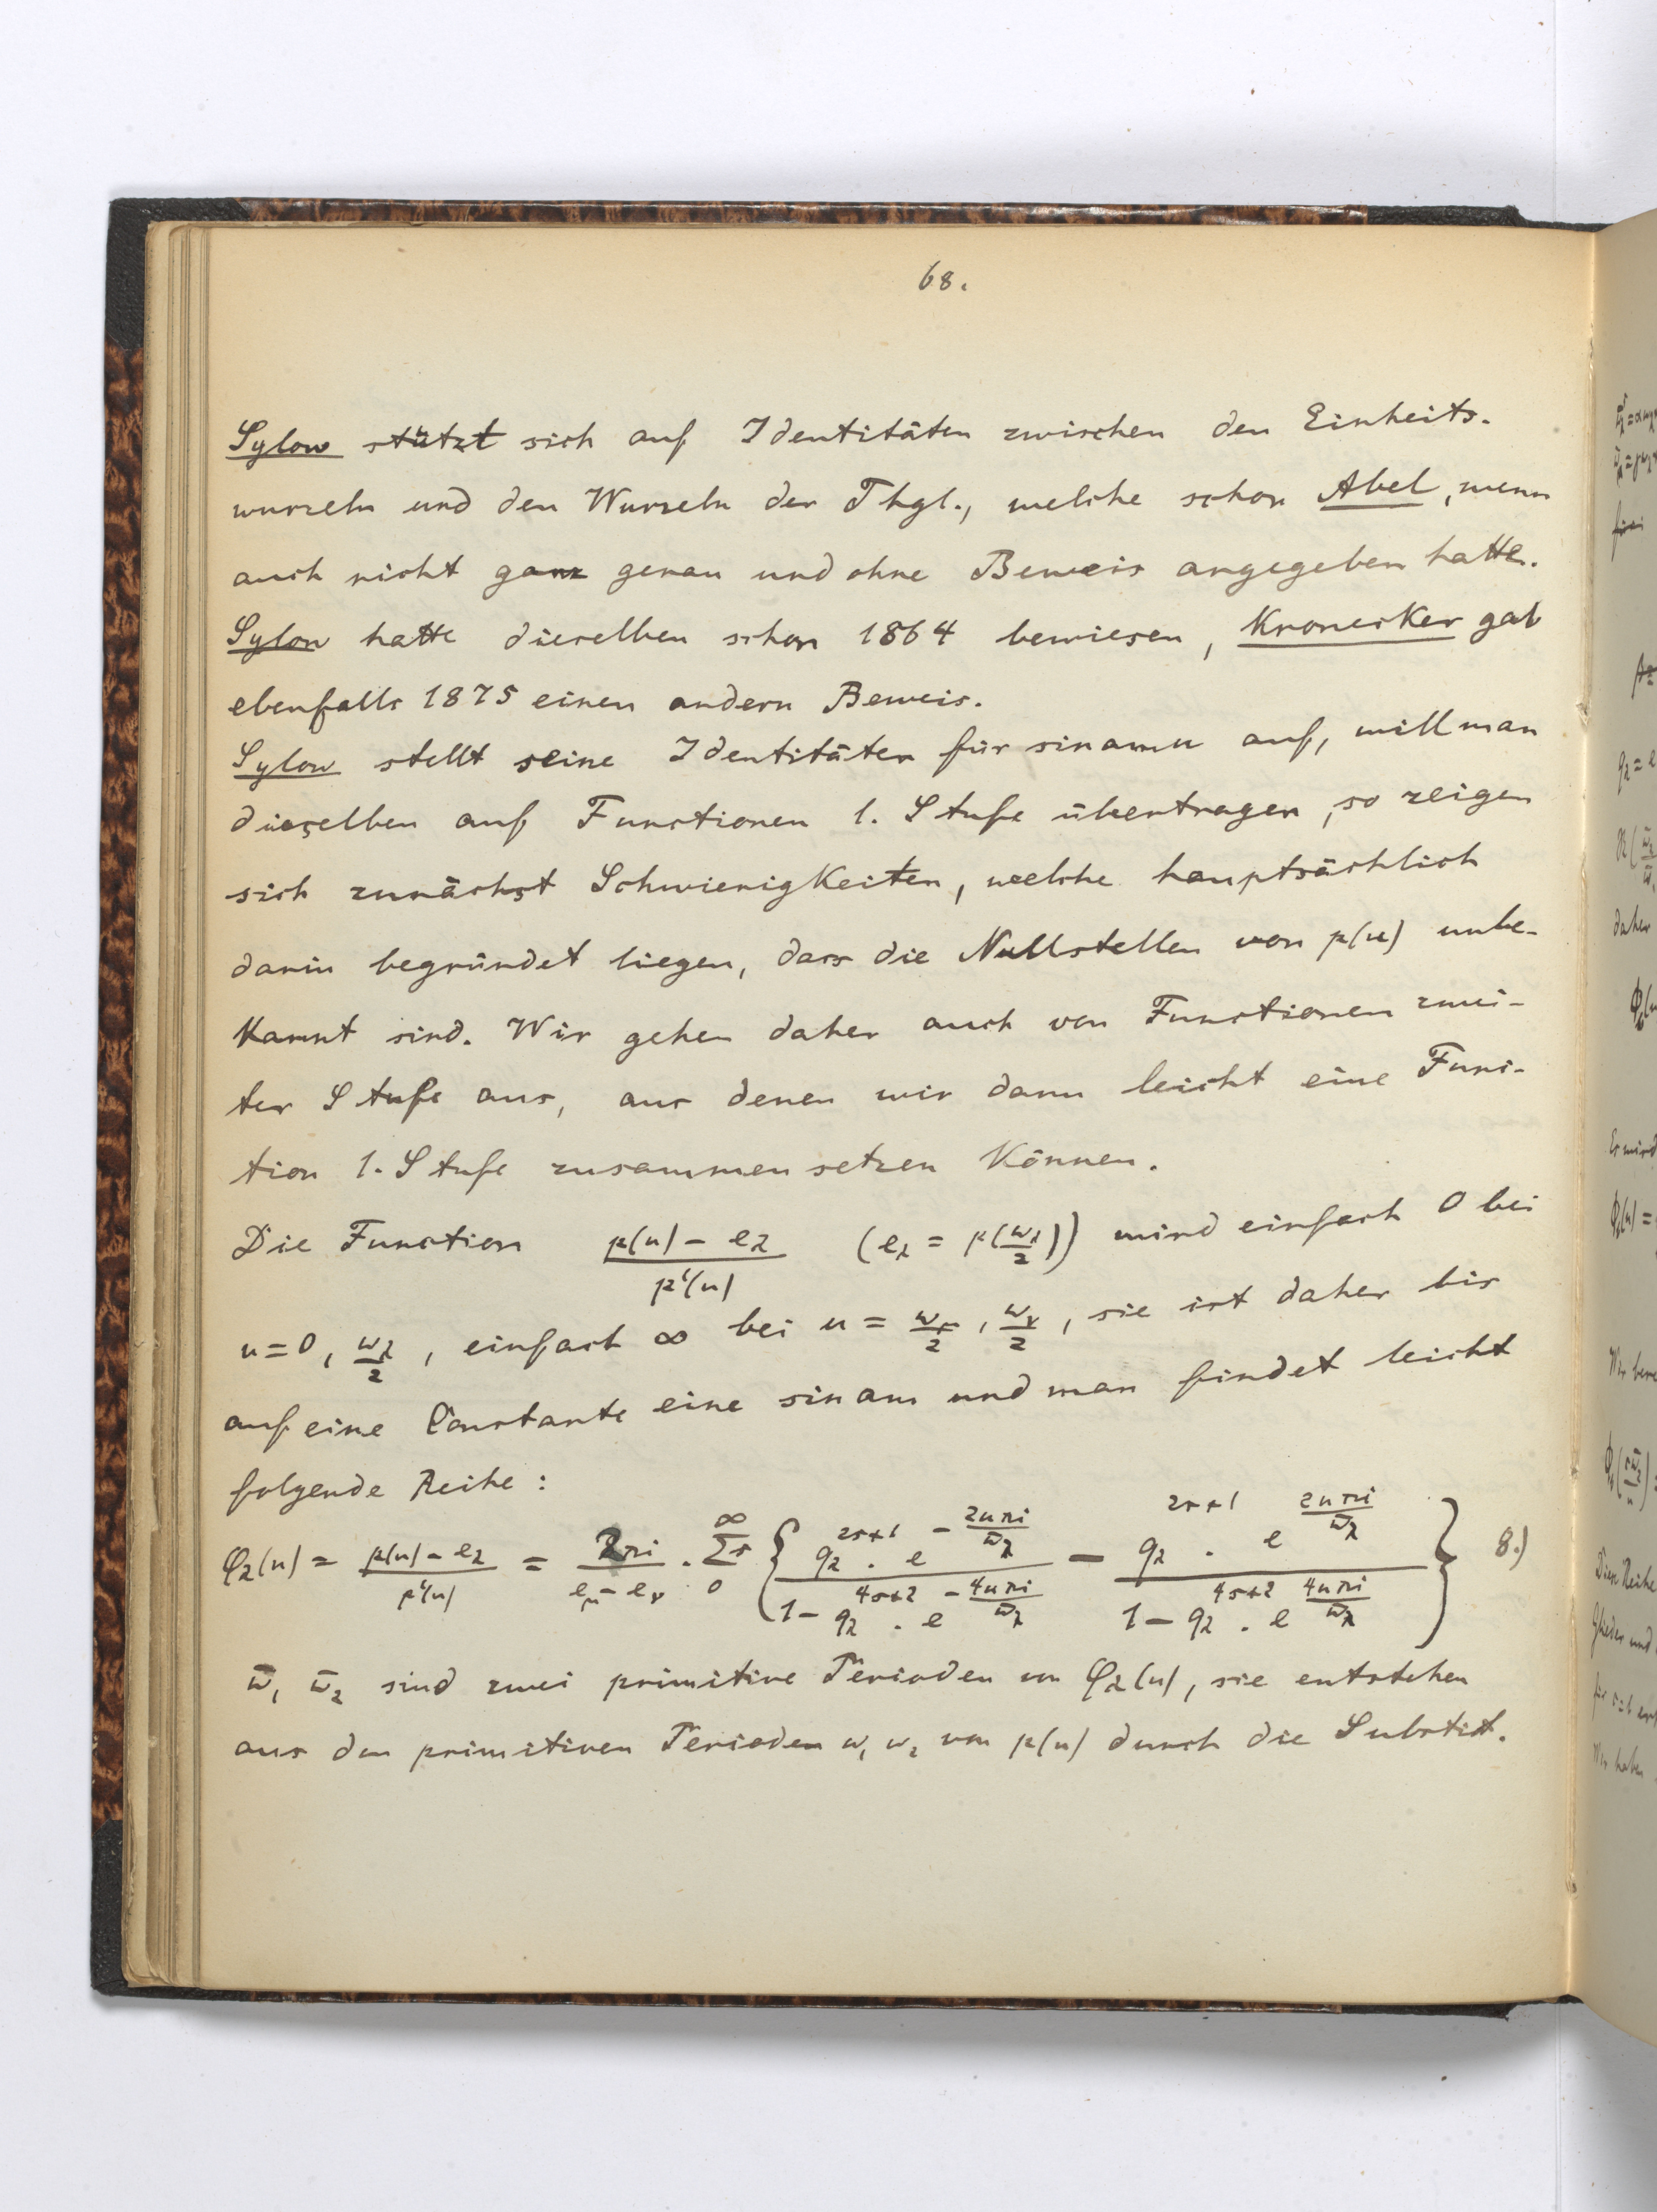 68.
Sylow stützt sich auf Identitäten zwischen den Einheits-
wurzeln und den Wurzeln der Thgl., welche schon Abel, wenn
auch nicht ganz genau und ohne Beweis angegeben hatte.
Sylow hatte dieselben schon 1864 bewiesen, Kronecker gab
ebenfalls 1875 einen andern Beweis.
Sylow stellt seine Identitäten für sinamu auf, will man
dieselben auf Functionen 1. Stufe übertragen, so zeigen
sich zunächst Schwierigkeiten, welche hauptsächlich
darin begründet liegen, dass die Nullstellen von p(u) unbe-
kannt sind. Wir gehen daher auch von Functionen zwei-
ter Stufe aus, aus denen wir dann leicht eine Func-
tion 1. Stufe zusammensetzen können.
Die Function (p(u) - e_λ)/(p'(u)) (e_λ = p(ω_λ/2)) wird einfach 0 bei
u=0, ω_λ/2, einfach ∞ bei u = ω_μ/2, ω_ν/2, sie ist daher bis
auf eine Constante eine sinam und man findet leicht
folgende Reihe:
φ_λ(u) = (p(u) - e_λ)/(p'(u)) = 2πi/(e_μ - e_ν) · Σr_0^∞ { (q_λ^{2r+1} · e^{-2uπi/ω̄_λ})/(1 - q_λ^{4r+2} · e^{-4uπi/ω̄_λ}) - (q_λ^{2r+1} · e^{2uπi/ω̄_λ})/(1 - q_λ^{4r+2} · e^{4uπi/ω̄_λ}) } 8.)
ω̄_1 ω̄_2 sind zwei primitive Perioden von φ_λ(u), sie entstehen
aus den primitiven Perioden ω_1 ω_2 von p(u) durch die Substit.